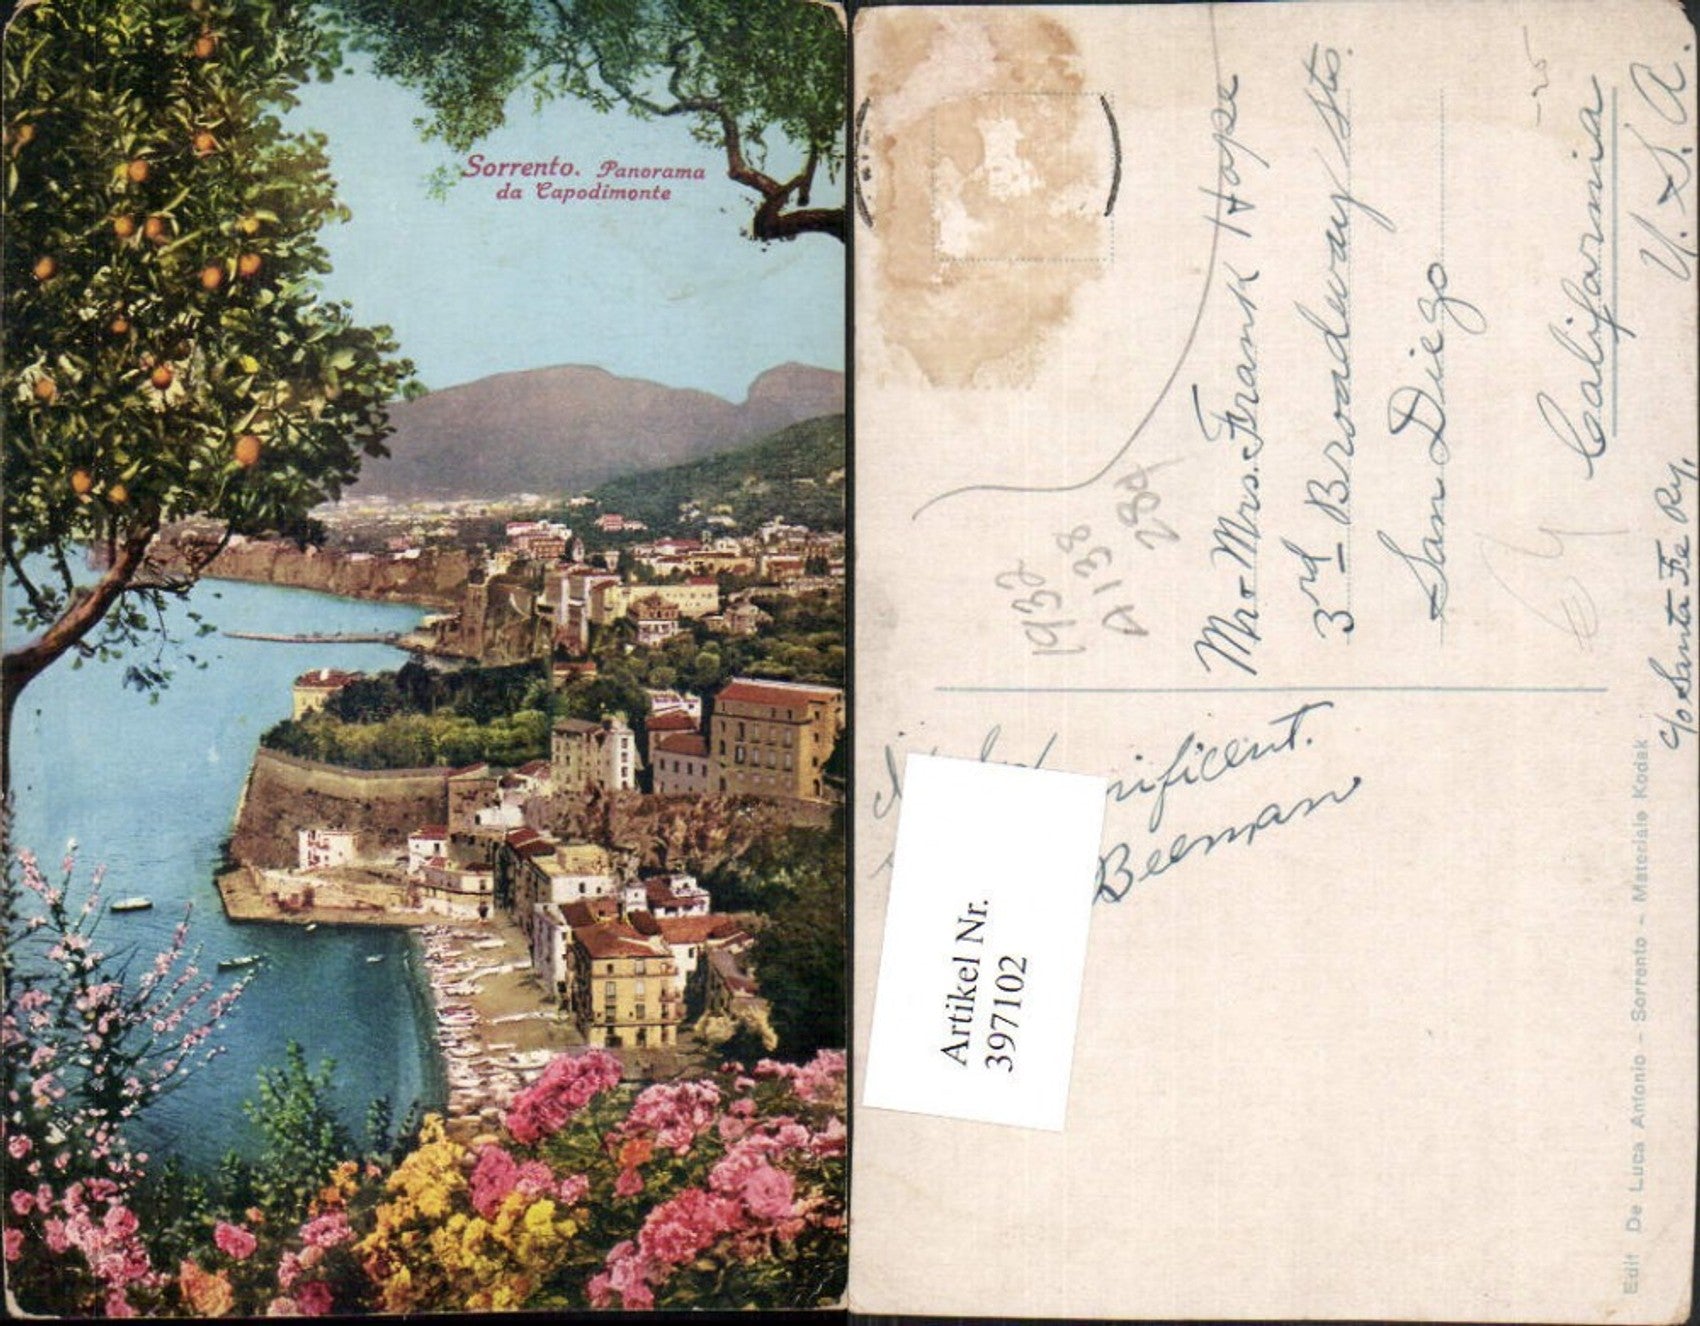 Sorrento. Panorama
da Capodimonte
1932
A138
284
Mr + Mrs. Frank Hope
3rd Broadway sts.
San Diego
California
U. S. A.
c/o Santa Fe Ry.
nificent.
Beeman
Artikel Nr.
397102
Edit De Luca Antonio - Sorrento - Materiale Kodak